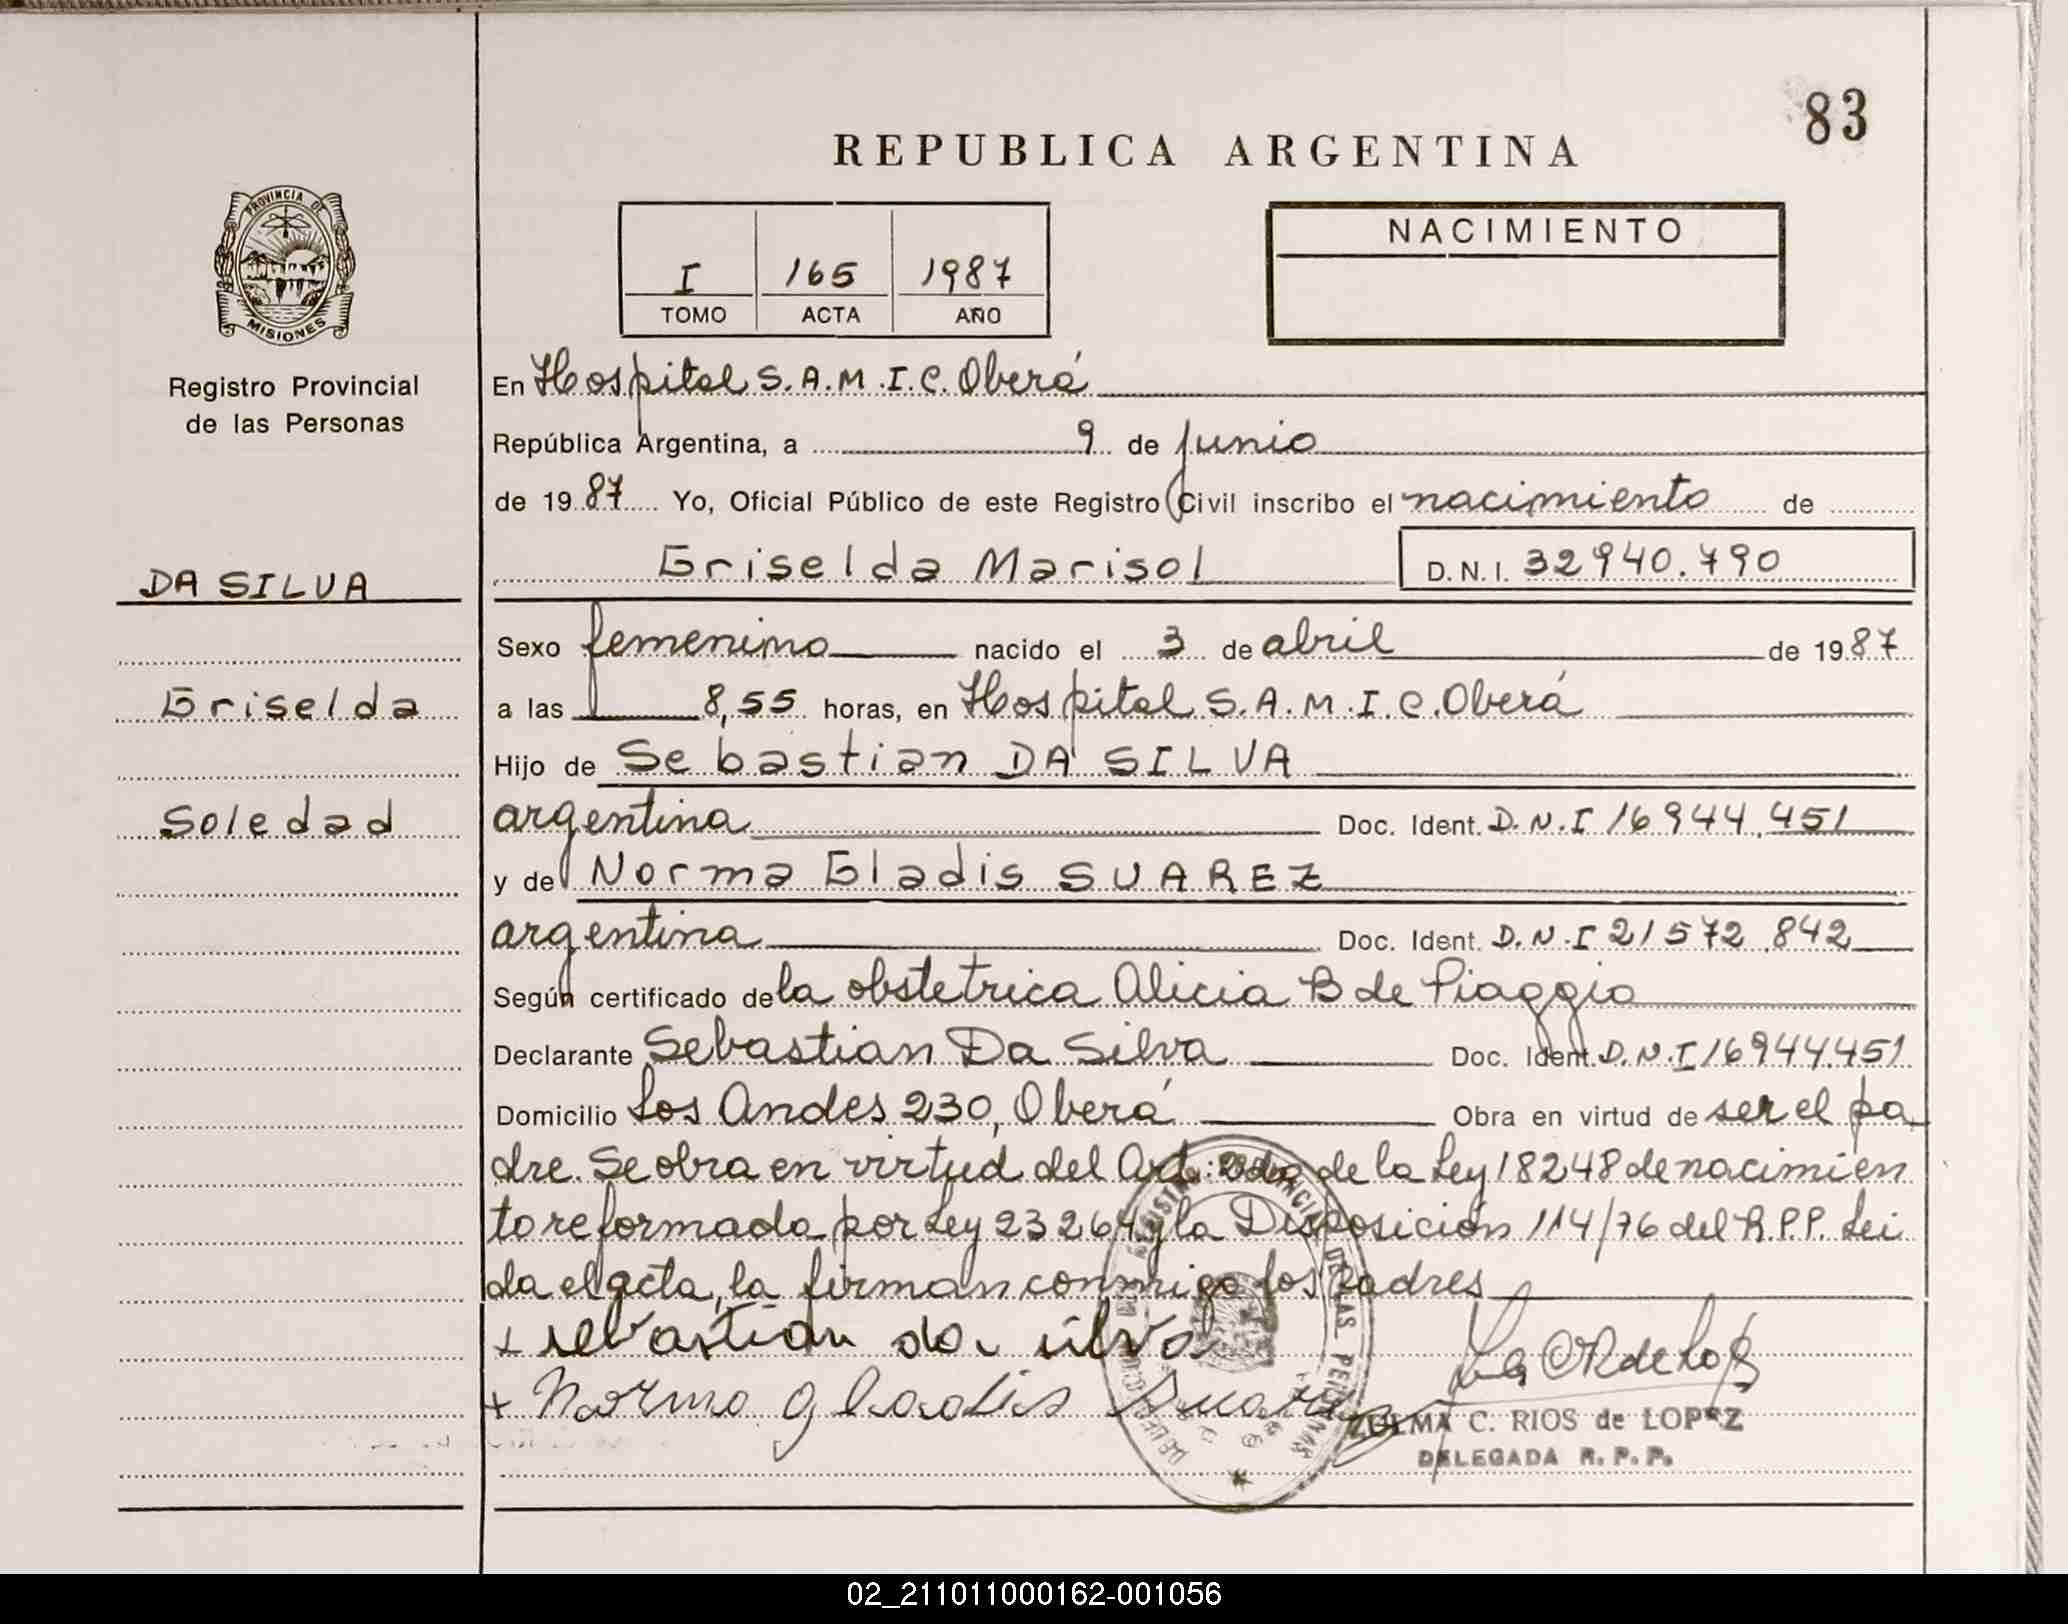 83
REPUBLICA ARGENTINA
PROVINCIA DE
MISIONES
Registro Provincial
de las Personas
I 165 1987
TOMO ACTA AÑO
NACIMIENTO
En Hospital S.A.M.I.C. Oberá
República Argentina, a 9 de junio
de 1987 Yo, Oficial Público de este Registro Civil inscribo el nacimiento de
Griselda Marisol D.N.I. 32940.790
DA SILVA
Griselda
Soledad
Sexo femenino nacido el 3 de abril de 1987
a las 8,55 horas, en Hospital S.A.M.I.C. Oberá
Hijo de Sebastian DA SILVA
argentina Doc. Ident. D.N.I 16944.451
y de Norma Gladis SUAREZ
argentina Doc. Ident. D.N.I 21572.842
Según certificado de la obstetrica Alicia B de Piaggio
Declarante Sebastian Da Silva Doc. Ident. D.N.I 16944.451
Domicilio Los Andes 230, Oberá Obra en virtud de ser el pa
dre. Se obra en virtud del Art. 2do de la Ley 18248 de nacimien
to reformada por Ley 23264 y la Disposición 114/76 del R.P.P. Lei
da el acta, la firman conmigo los padres
+ sebastian da silva
+ Norma gladis Suarez
ZULMA C. RIOS de LOPEZ
DELEGADA R.P.P.
02_211011000162-001056